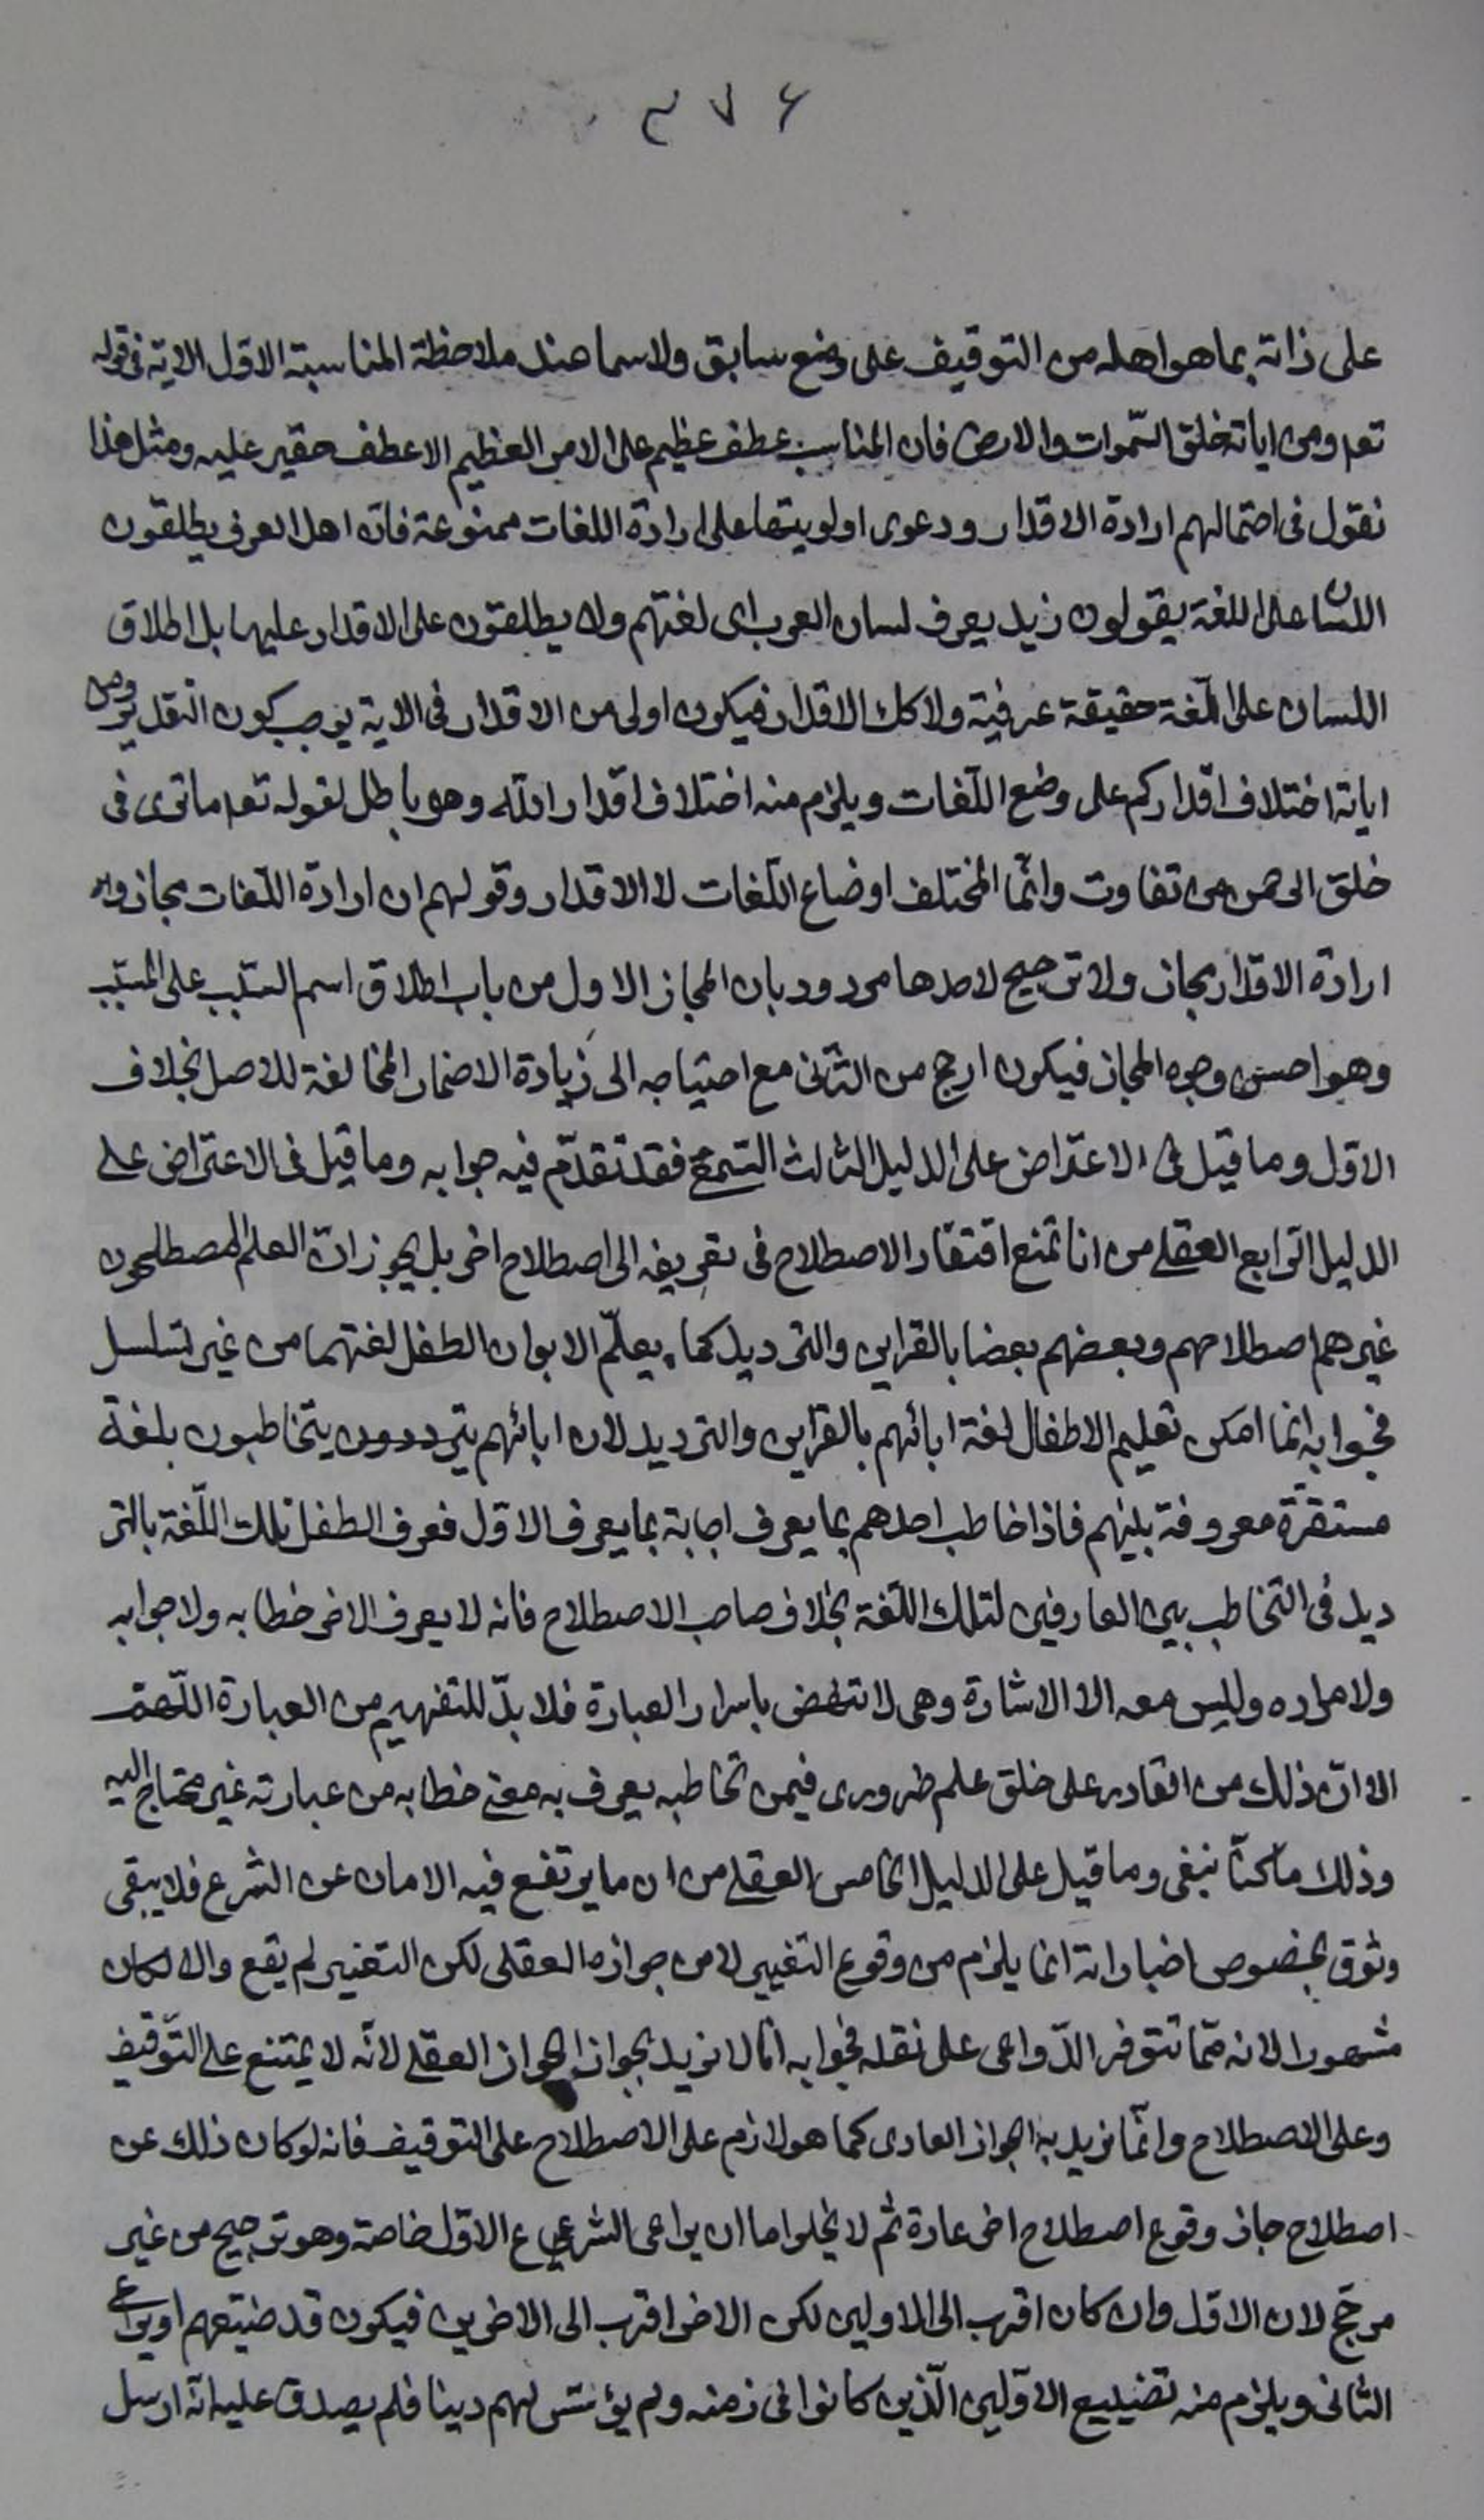 ٣٧٦
على ذاته بما هو اهله من التوقيف على وضع سابق ولا سيما عند ملاحظة المناسبة الاول الاية فى قوله
تعه ومن اياته خلق السّموات والارض فان المناسب عطف عظيم على الامر العظيم الا عطف حقير عليه ومثل هذا
نقول فى احتمالهم ارادة الاقدار ودعوى اولويتها على ارادة اللغات ممنوعة فانّ اهل العرف يطلقون
اللسان على اللغة يقولون زيد يعرف لسان العرب اى لغتهم ولا يطلقون على الاقدار عليها بل اطلاق
اللسان على اللّغة حقيقة عرفية ولا كك الاقدار فيكون اولى من الاقدار فى الاية يوجب كون التقدير ومن
اياته اختلاف اقداركم على وضع اللّغات ويلزم منه اختلاف اقدار اللّه وهو باطل لقوله تعه ما ترى فى
خلق الرحمن من تفاوت وانّما المختلف اوضاع اللّغات لا الاقدار وقولهم ان ارادة اللّغات مجاز وان
ارادة الاقدار مجاز ولا ترجيح لاحدها مردود بان المجاز الاول من باب اطلاق اسم السّبب على المسبّب
وهو احسن وجوه المجاز فيكون ارجح من الثّانى مع احتياجه الى زيادة الاضمار المخالفة للاصل بخلاف
الاوّل وما قيل فى الاعتراض على الدليل الثالث السّمعى فقد تقدّم فيه جوابه وما قيل فى الاعتراض على
الدليل الرّابع العقلى من انا نمنع افتقار الاصطلاح فى تعريفه الى اصطلاح اخر بل يجوز انّ العلم المصطلحون
غيرهم اصطلاحهم وبعضهم بعضا بالقراين والترديد كما يعلّم الابوان الطفل لغتهما من غير تسلسل
فجوابه انما امكن تعليم الاطفال لغة ابائهم بالقراين والترديد لان ابائهم يترددون يتخاطبون بلغة
مستقرّة معروفة بينهم فاذا خاطب احدهم بما يعرف اجابة بما يعرف الاوّل فعرف الطفل تلك اللّغة بالتر
ديد فى التّخاطب بين العارفين لتلك اللّغة بخلاف صاحب الاصطلاح فانه لا يعرف الاخر خطابه ولا جوابه
ولا مراده وليس معه الا الاشارة وهى لا تنهض باسرار العبارة فلا بدّ للتفهيم من العبارة اللّهمّ
الا انّ ذلك من القادر على خلق علم ضرورى فيمن تخاطبه يعرف به معنى خطابه من عبارته غير محتاج اليه
وذلك ما كنّا نبغى وما قيل على الدليل الخامس العقلى من ان ما يرتفع فيه الامان عن الشرع فلا يبقى
وثوق بخصوص اخباراته انما يلزم من وقوع التغيير لا من جوازه العقلى لكن التغيير لم يقع والا لكان
مشهورا لانه ممّا تتوفر الدّواعى على نقله فجوابه انا لا نريد بجواز الجواز العقلى لانّه لا يمتنع على التّوقيف
وعلى الاصطلاح وانّما نريد به الجواز العادى كما هو لازم على الاصطلاح على التوقيف فانه لو كان ذلك عن
اصطلاح جاز وقوع اصطلاح اخر عادة ثم لا يخلوا اما ان يراعى الشرع الاوّل خاصة وهو ترجيح من غير
مرجّح لان الاوّل وان كان اقرب الى الاولين لكن الاخر اقرب الى الاخرين فيكون قد ضيّعهم او يراعى
الثانى ويلزم منه تضييع الاوّلين الّذين كانوا فى زمنه ولم يؤسّس لهم دينا فلم يصدق عليه انّه ارسل